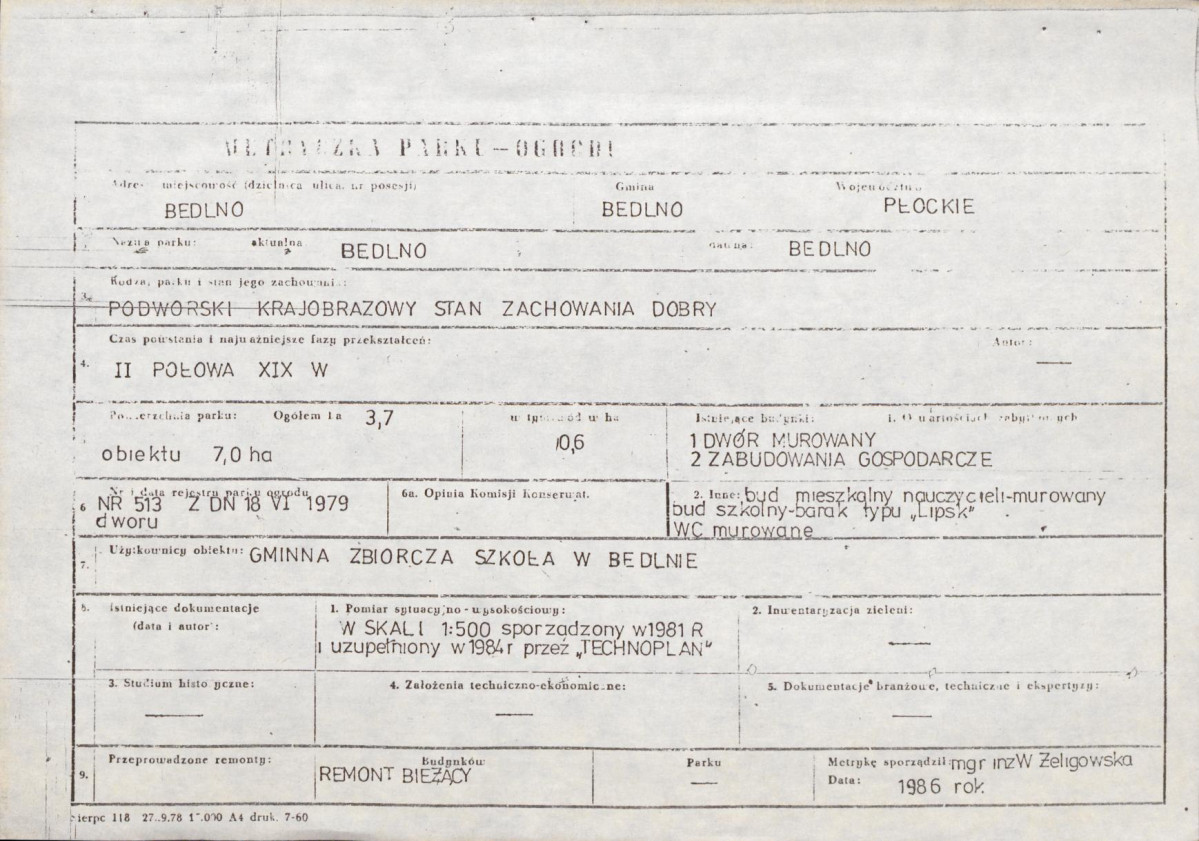 METRYCZKA PARKU-OGRODU
Adres miejscowość (dzielnica ulica, nr posesji) Gmina Województwo
BEDLNO BEDLNO PŁOCKIE
Nazwa parku: aktualna BEDLNO dawna: BEDLNO
3. Rodzaj parku i stan jego zachowania:
PODWORSKI KRAJOBRAZOWY STAN ZACHOWANIA DOBRY
Czas powstania i najważniejsze fazy przekształceń: Autor:
4. II POŁOWA XIX W —
Powierzchnia parku: Ogółem ha 3,7 w tym wód w ha Istniejące budynki: 1. O wartościach zabytkowych
0,6 1 DWÓR MUROWANY
obiektu 7,0 ha 2 ZABUDOWANIA GOSPODARCZE
6 Nr i data rejestru parku ogrodu 6a. Opinia Komisji Konserwat. 2. Inne: bud mieszkalny nauczycieli-murowany
NR 513 Z DN 18 VI 1979 bud szkolny-barak typu „Lipsk"
dworu WC murowane
7. Użytkownicy obiektu: GMINNA ZBIORCZA SZKOŁA W BEDLNIE
8. Istniejące dokumentacje 1. Pomiar sytuacyjno-wysokościowy: 2. Inwentaryzacja zieleni:
(data i autor): W SKALI 1:500 sporządzony w 1981 R —
i uzupełniony w 1984 r przez „TECHNOPLAN"
3. Studium historyczne: 4. Założenia techniczno-ekonomiczne: 5. Dokumentacje branżowe, techniczne i ekspertyzy:
— — —
9. Przeprowadzone remonty: Budynków Parku Metrykę sporządził: mgr inz W Żeligowska
REMONT BIEŻĄCY — Data: 1986 rok
ierpc 118 27..9.78 1.000 A4 druk. 7-60